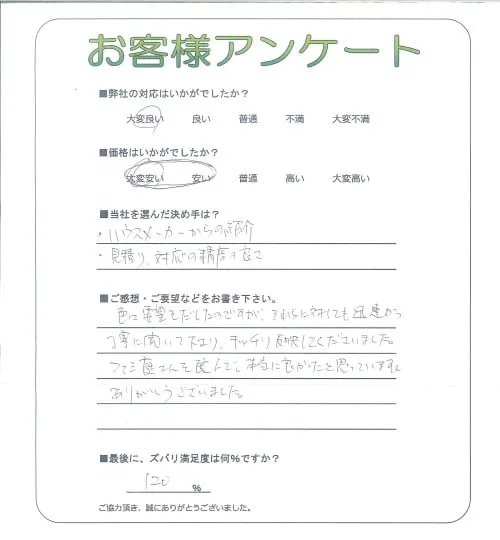 お客様アンケート
■弊社の対応はいかがでしたか？
大変良い 良い 普通 不満 大変不満
■価格はいかがでしたか？
大変安い 安い 普通 高い 大変高い
■当社を選んだ決め手は？
・ハウスメーカーからの紹介
・見積り、対応の精度の
■ご感想・ご要望などをお書き下さい。
色々要望をだしたのですが、それらに対しても迅速かつ
丁寧に聞いて下さり、キッチリ反映してくださいました。
ファミ庭さんを選んで、本当に良かったと思っています。
ありがとうございました。
■最後に、ズバリ満足度は何％ですか？
120 %
ご協力頂き、誠にありがとうございました。